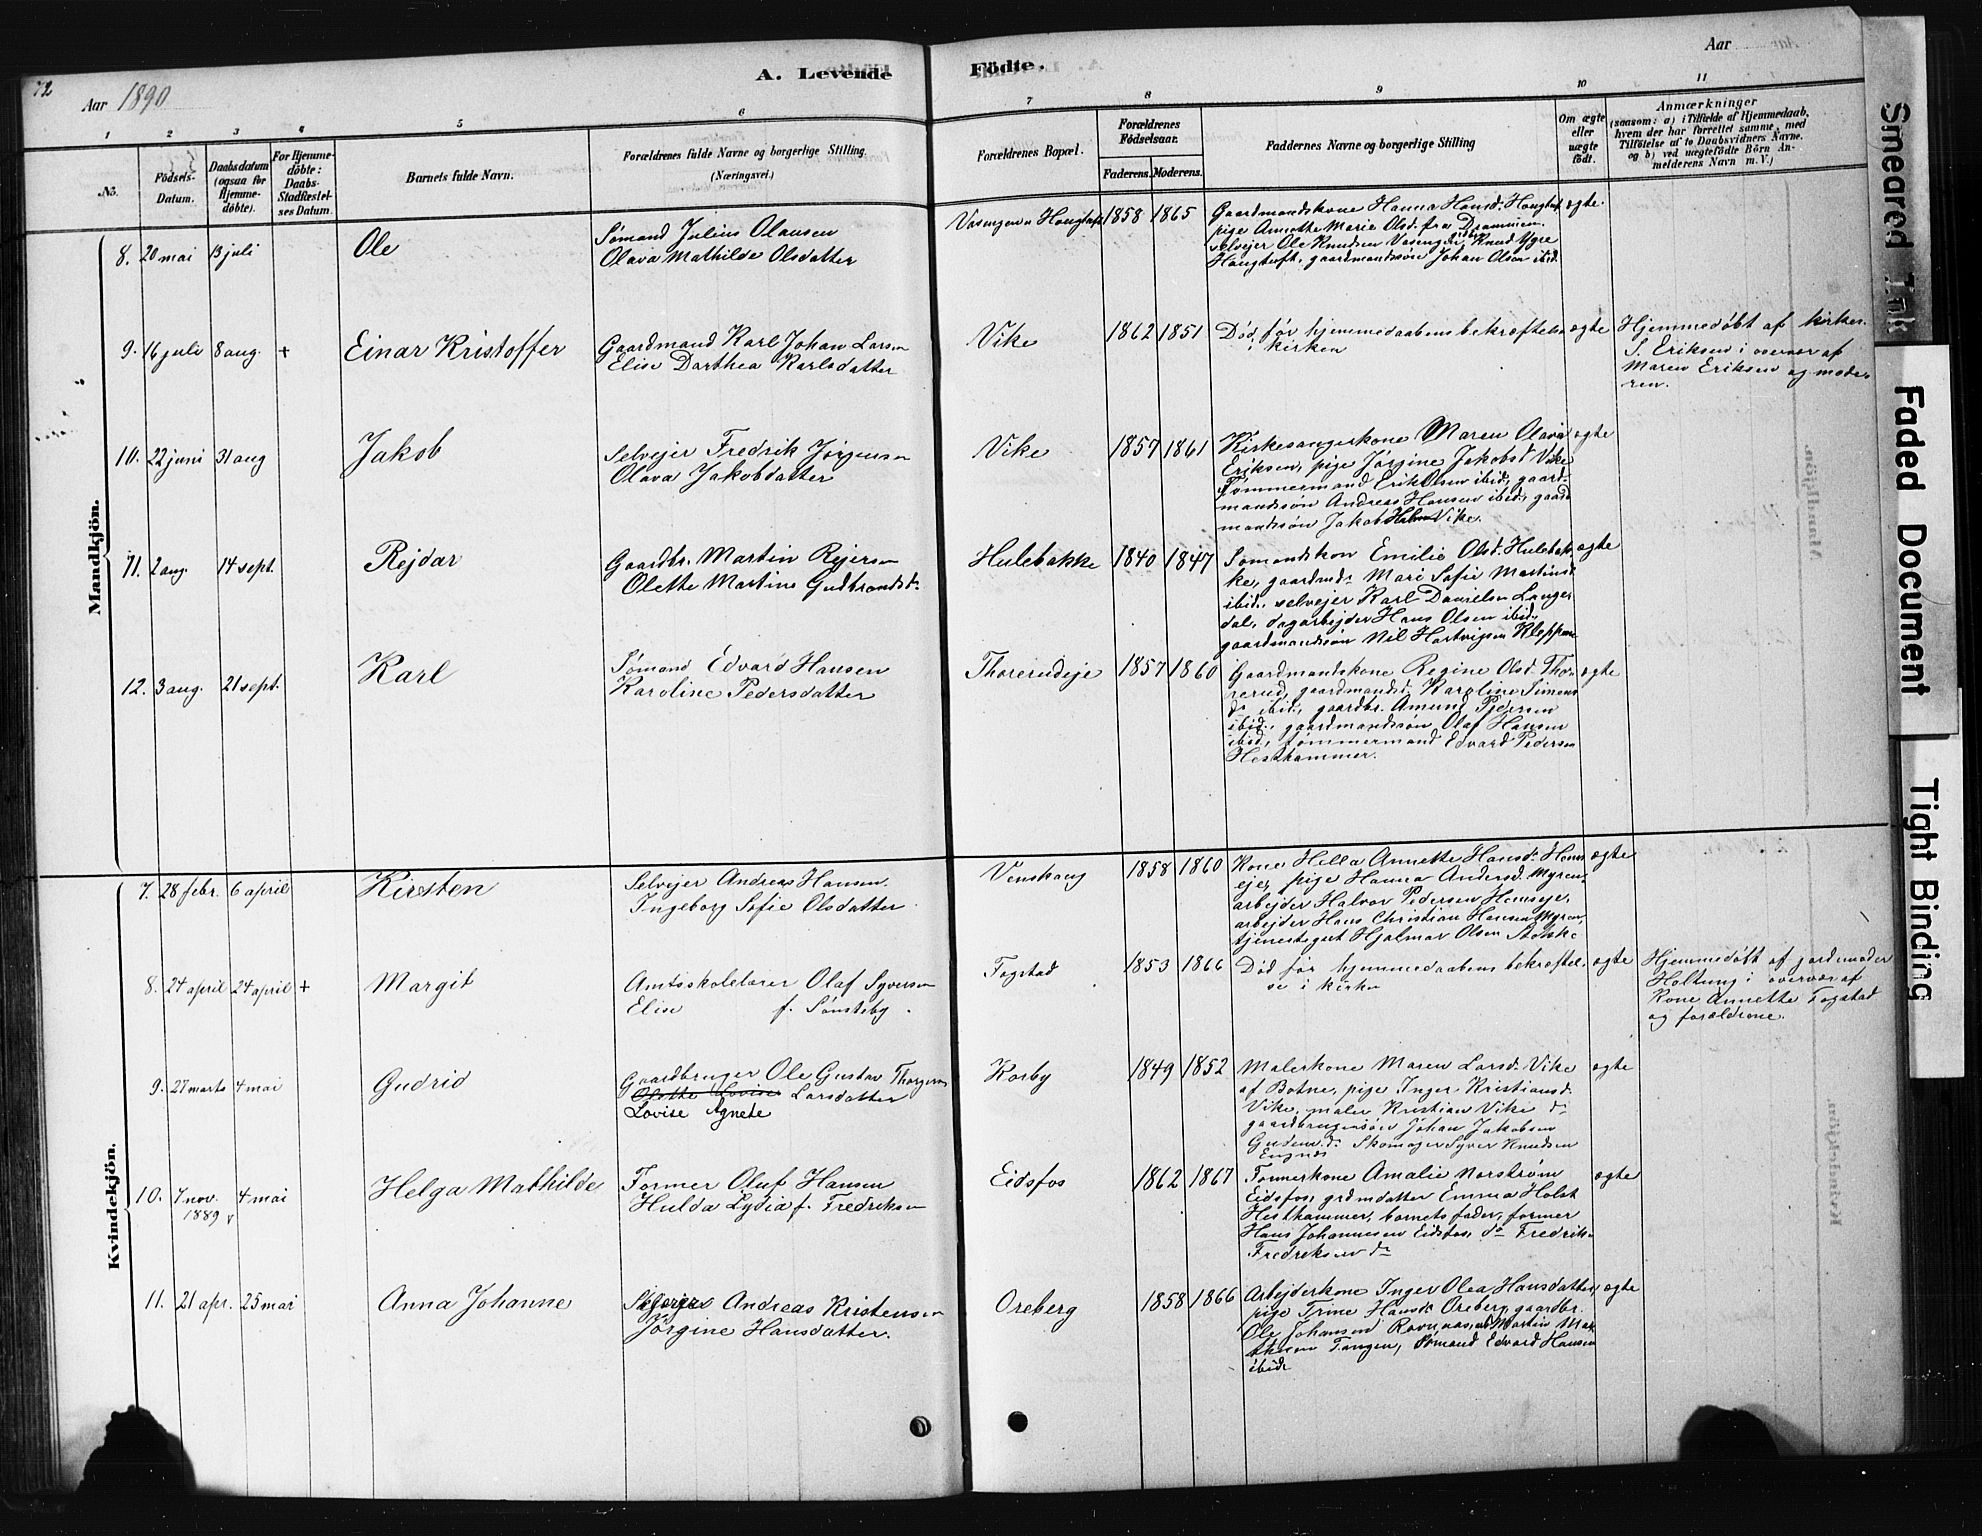 72
Aar 1890
A. Levende
Födte.
Aar
1 2 3 4 5 6 7 8 9 10 11
No.
Födsels-Datum.
Daabsdatum (ogsaa for Hjemme-döbte).
For Hjemme-döbte: Daabs-Stadfæstel-ses Datum.
Barnets fulde Navn.
Forældrenes fulde Navne og borgerlige Stilling.
(Næringsvei.)
Forældrenes Bopæl.
Forældrenes Födselsaar.
Faderens. Moderens.
Faddernes Navne og borgerlige Stilling
Om ægte eller uægte födt.
Anmærkninger
(saasom: a) i Tilfælde af Hjemmedaab,
hvem der har forrettet samme, med
Tilföielse af to Daabsvidners Navne.
og b) ved uægtefödte Börn An-
melderens Navn m. V.)
Mandkjön.
8. 20 mai 13 juli Ole
Sømand Julius Olausen
Olava Mathilde Olsdatter
1858 1865
Gaardmandskone Hanna Hansd. Hougtuft
pige Annette Marie Olsd. fra Drammen.
selvejer Ole Knudsen Knud Ygre
Hougtuft, gaardmandssøn Johan Olsen ibid.
ægte.
9. 16 juli 8 aug. + Einar Kristoffer
Gaardmand Karl Johan Larsen
Elise Dorthea Karlsdatter
Vike 1862 1851
Død før hjemmedaabens bekræftelse
i kirken
ægte
Hjemmedøbt af kirkes.
S. Eriksen i overvær af
Maren Eriksen og mode-
ren.
10. 22 juni 31 aug Jakob
Selvejer Fredrik Jørgensen
Olava Jakobdatter
Vike 1857 1861
Kirkesangerkone Maren Olava
Eriksen, pige Jørgine Jakobsd Vike
Tømmermand Erik Olsen ibid., gaard-
mandssøn Andreas Hansen ibid., gaard
mandssøn Jakob Vike.
ægte
11. 2 aug. 14 sept. Rejdar
Gaardbr. Martin Rejersen
Olette Martine Gudbrandsdr.
Hulebakke 1840 1847
Sømandskon Emilie Olsd. Hulebak-
ke, gaardmdr Mari Sofie Martinsd
ibid., selvejer Karl Danielsen Langer
dal, dagarbejder Hans Olsen ibid.,
gaardmandssøn Nil Hartvigsen
ægte
12. 3 aug. 21 sept. Karl
Sømand Edvard Hansen
Karoline Pedersdatter
Thorerudeje 1857 1860
Gaardmandskone Regine Olsd. Tho-
rerud, gaardmandsd. Karoline Simens
dr ibid., gaardbr. Amund Pedersen
ibid., gaardmandssøn Olaf Hansen
ibid., tømmermand Edvard Pedersen
Hesthammer.
ægte
Kvindekjön.
7. 28 febr. 6 april Kirsten
Selvejer Andreas Hansen.
Ingeborg Sofie Olsdatter.
1858 1860
Kone Hella Annette Hansdr. Hems
eje, pige Hanna Andersd. Myren,
arbejder Halvor Pedersen Hemseje,
arbejder Hans Christian Hansen Myren,
tjenestegut Hjalmar Olsen
ægte
8. 24 april 24 april + Margit
Amtsskolelærer Olaf Syversen
Elise f. Sønsteby.
Togstad 1853 1866
Død før hjemmedaabens bekræftel-
se i kirken
ægte
Hjemmedøbt af jordemoder
Holtung i overvær af
Kone Annette Togstad
og forældrene.
9. 27 marts 4 mai Gudrid
Gaardbruger Ole Gustav Thorgersen
Olette Lovise Larsdatter
Lovise Agnete
Korby 1849 1852
Malerkone Maren Larsd. Vike
af Botne, pige Inger Kristiansd.
Vike, maler Kristian Vike dr
gaardbrugersøn Johan Jakobsen
dr Skomager Syver Knudsen
Engnæs
ægte
10. 7 nov. 1889 4 mai Helga Mathilde
Former Oluf Hansen
Hulda Lydia f. Fredriksen
Eidsfos 1862 1867
Formerkone Amalie Norstrøm
Eidsfos, grdmdatter Emma Holst
Hesthammer, barnets fader, former
Hans Johannesen Eidsfos, do Fredrik
Fredriksen do
ægte
11. 21 apr. 25 mai Anna Johanne
Andreas Kristensen
Jørgine Hansdatter.
Oreberg 1858 1866
Arbejderkone Inger Olea Hansdatter
pige Trine Hansdr Oreberg, gaardbr.
Ole Johansen Ravnaas, Martin Mat-
thesen Tangen, Sømand Edvard Hansen
ibid.
ægte
Smeared Ink
Faded Document
Tight Binding